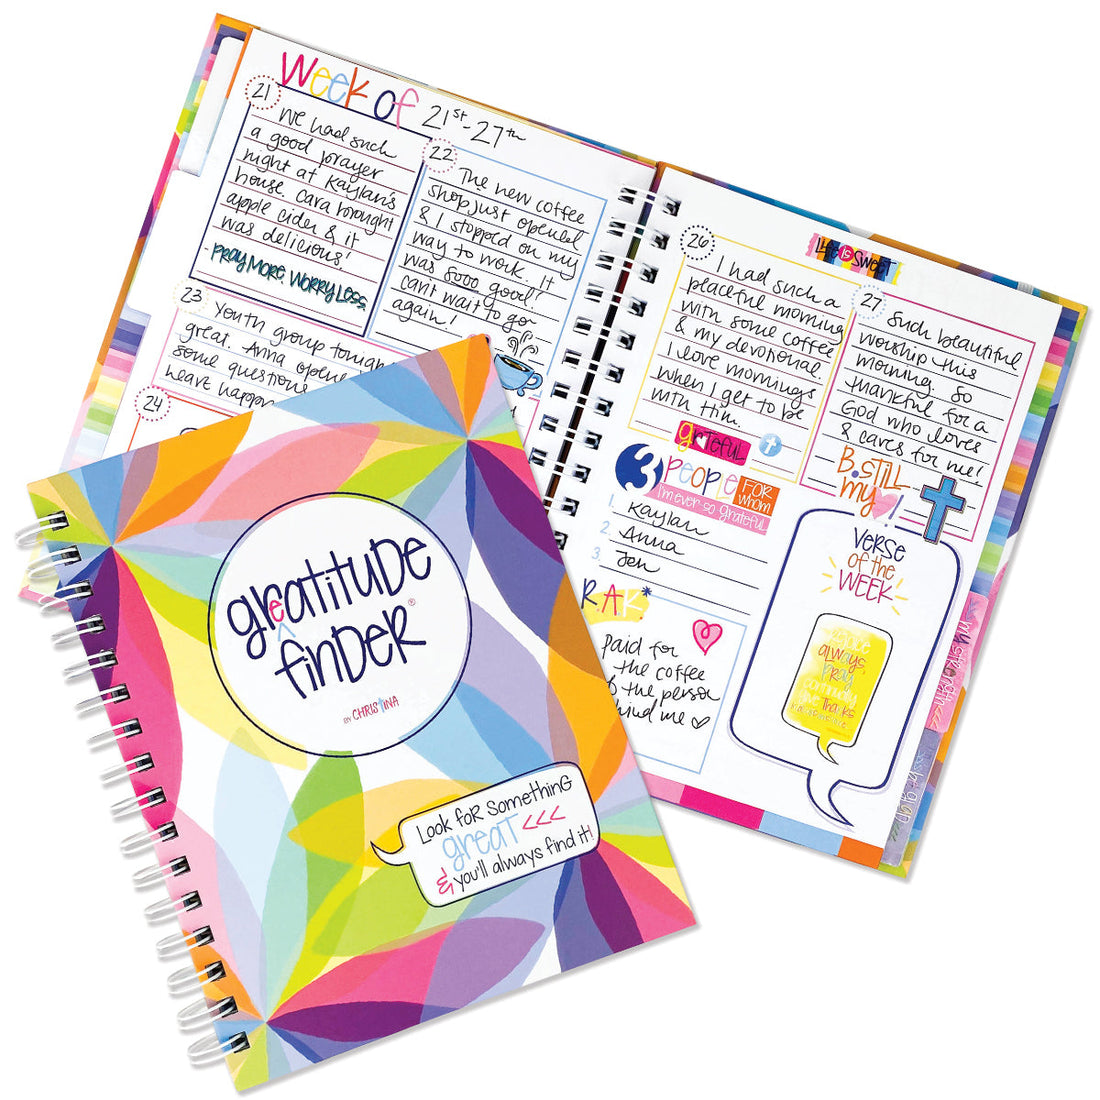 Week of 21st-27th
21
We had such
a good prayer
night at Kaylan's
house. Cara brought
apple cider & it
was delicious!
- Pray More. Worry Less.
22
The new coffee
shop just opened
& I stopped on my
way to work. It
was sooo good!
can't wait to go
again!
23
Youth group tonight
great. Anna opened
some questions
leave happy
24
26
I had such a
peaceful morning
with some coffee
& my devotional
I love mornings
when I get to be
with Him.
grateful
Life is Sweet
27
Such beautiful
worship this
morning. So
thankful for a
God who loves
& cares for me!
B.Still
my !
3 PEOPLE FOR whom
I'm ever so grateful
1. Kaylan
2. Anna
3. Jen
R.A.K*
paid for
the coffee
the person
me ♡
VERSE
OF the
WEEK
always,
pray
continually
give thanks
greatitude
finder®
BY CHRISTINA
Look for something
great <<<
& you'll always find it!